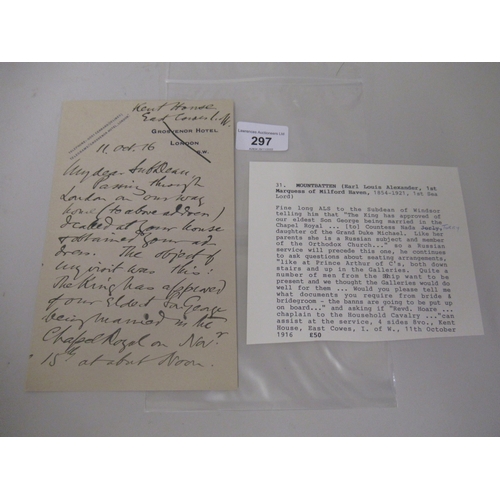 Kent House
East Cowes. I.W.
GROSVENOR HOTEL
LONDON
S.W.
11 Oct. 16
My dear Subdean,
Passing through
London on our way
home (to above address) I
called at your house
& obtained your ad-
dress. The object of
my visit was this:
The King has approved
of our Eldest Son George
being married in the
Chapel Royal on Novr
15th at about Noon.
297
31. MOUNTBATTEN (Earl Louis Alexander, 1st
Marquess of Milford Haven, 1854-1921, 1st Sea
Lord)
Fine long ALS to the Subdean of Windsor
telling him that "The King has approved of
our eldest Son George being married in the
Chapel Royal ... [to] Countess Nada
daughter of the Grand Duke Michael. Like her
parents she is a Russian subject and member
of the Orthodox Church..." as a Russian
service will precede this one, he continues
to ask questions about seating arrangements,
"like at Prince Arthur of C's, both down
stairs and up in the Galleries. Quite a
number of men from the Ship want to be
present and we thought the Galleries would do
well for them ... Would you please tell me
what documents you require from bride &
bridegroom - the banns are going to be put up
on board..." and asking if "Revd. Hoare ...
chaplain to the Household Cavalry ..."can
assist at the service, 4 sides 8vo., Kent
House, East Cowes, I. of W., 11th October
1916 £50